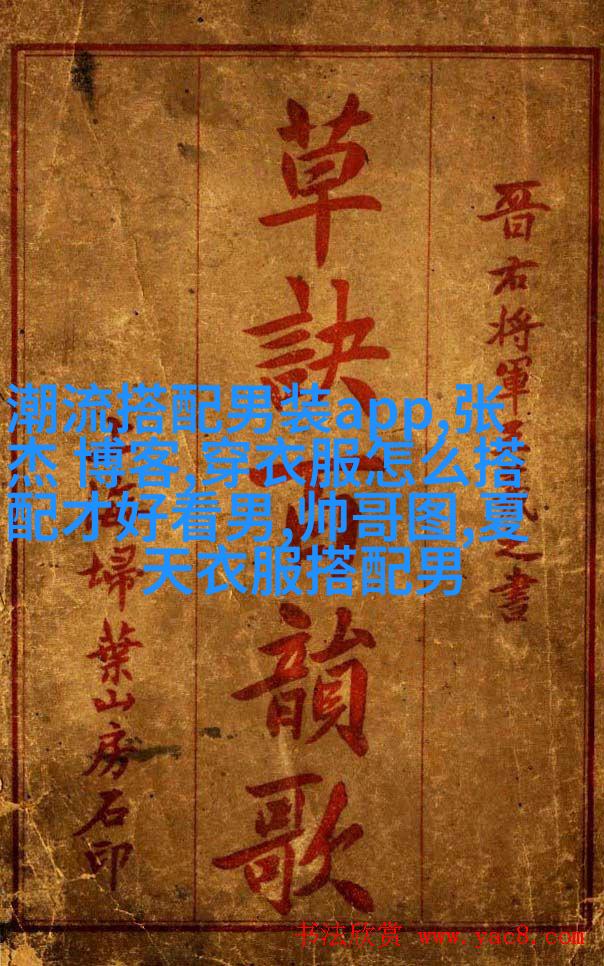 晉右将軍王羲之書
草訣百韻歌
海掃葉山房石印
潮流搭配男装app,张
杰 博客,穿衣服怎么搭
配才好看男,帅哥图,夏
天衣服搭配男
书法欣赏 www.yac8.com